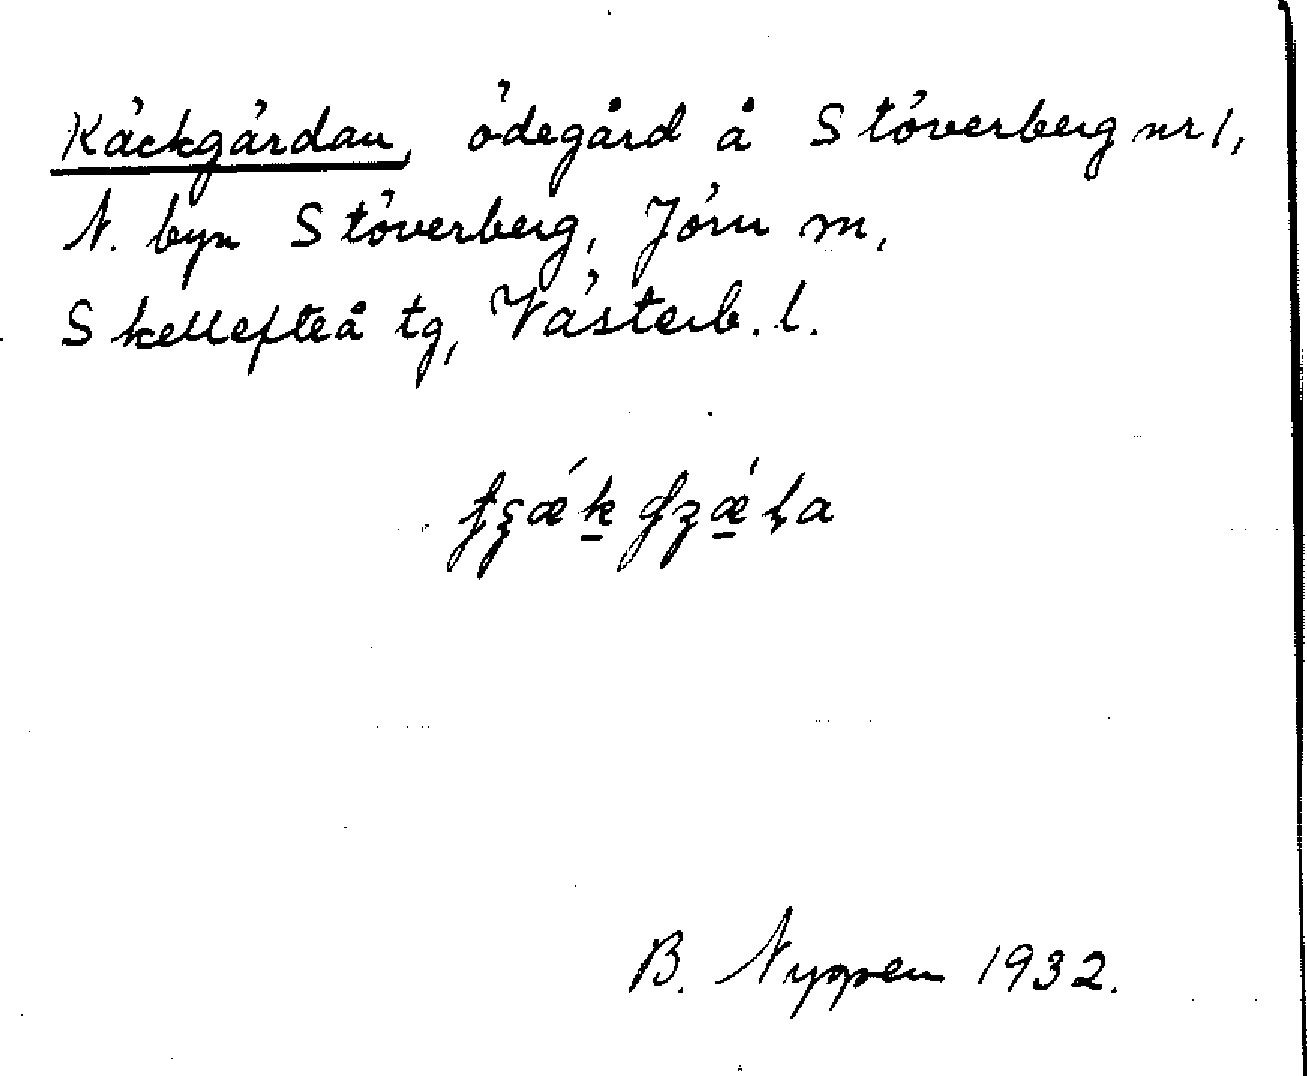 Käckgärdan, ödegård å Stöverberg nr 1,
N. byn Stöverberg, Jörn m,
Skellefteå tg, Västerb. l.
B. Nyppen 1932.